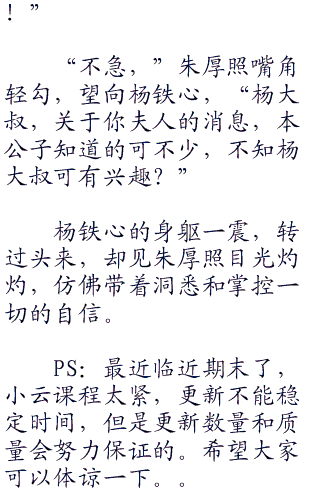 ！”
“不急，”朱厚照嘴角
轻勾，望向杨铁心，“杨大
叔，关于你夫人的消息，本
公子知道的可不少，不知杨
大叔可有兴趣？”
杨铁心的身躯一震，转
过头来，却见朱厚照目光灼
灼，仿佛带着洞悉和掌控一
切的自信。
PS：最近临近期末了，
小云课程太紧，更新不能稳
定时间，但是更新数量和质
量会努力保证的。希望大家
可以体谅一下。。